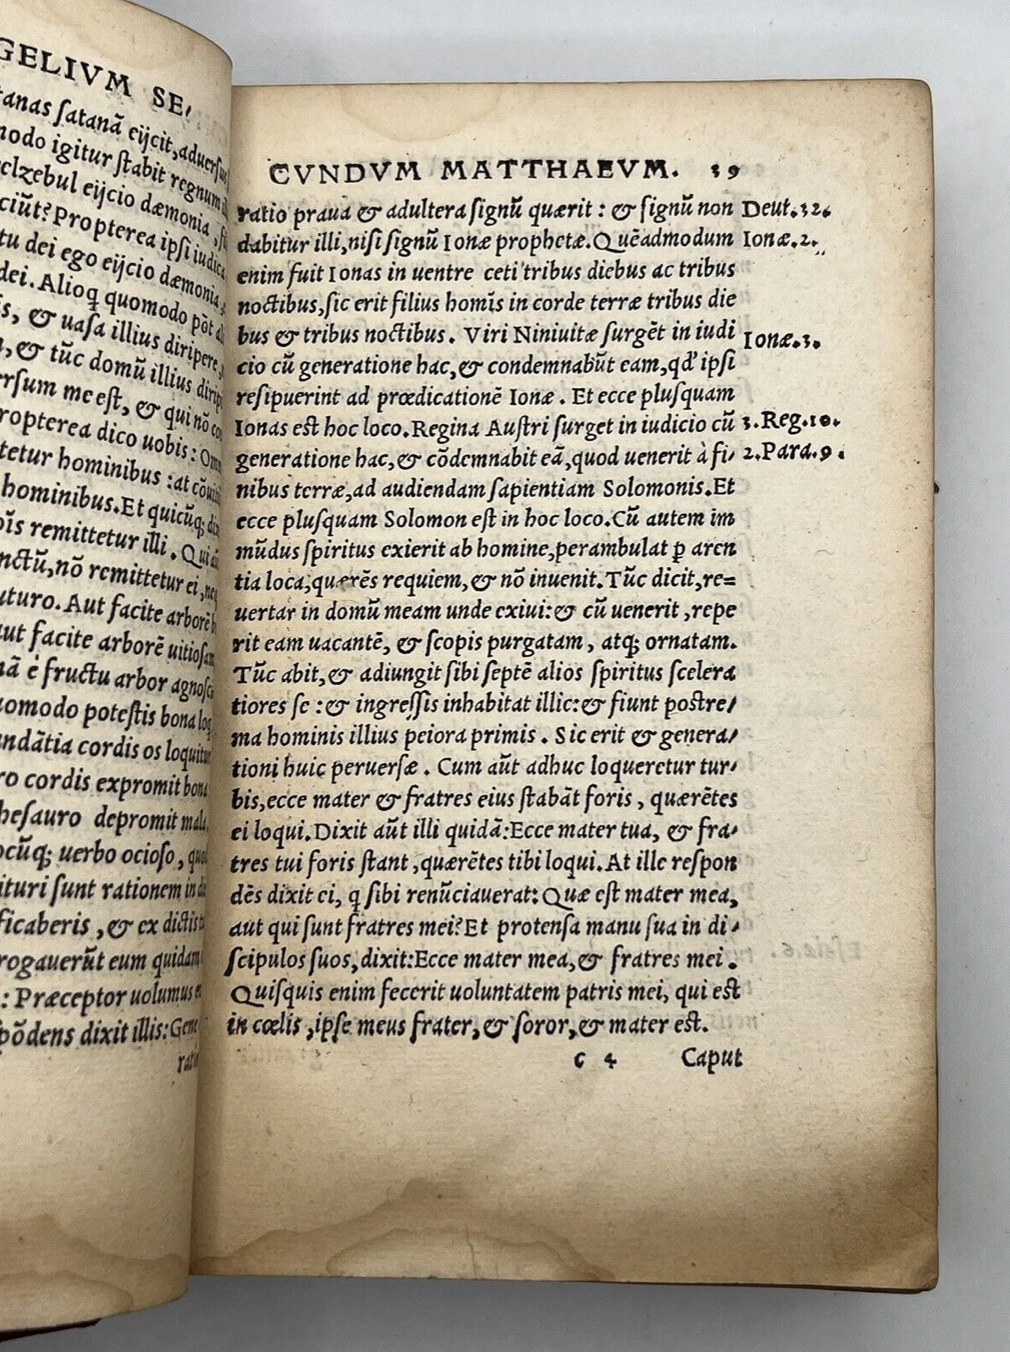 GELIVM SE
tanas ſatanã eijcit, aduerſus
modo igitur ſtabit regnum
eelzebul eijcio dæmonia,
ciũt? Propterea ipſi iudic
tu dei ego eijcio dæmonia,
dei. Alioq quomodo põt
s, & uaſa illius diripere,
, & tũc domũ illius dirip
rſum me eſt, & qui nõ co
ropterea dico uobis: Om
tetur hominibus: at cõui
hominibus. Et quicũq; di
is remittetur illi. Qui
nctũ, nõ remittetur ei, neq
uturo. Aut facite arborẽ b
ut facite arborẽ uitioſam
ã è fructu arbor agnoſci
uomodo poteſtis bona loq
undãtia cordis os loquitur
ro cordis expromit bona
heſauro depromit mala,
ocũq; uerbo ocioſo, quod
ituri ſunt rationem in di
ficaberis, & ex dictis t
rogauerũt eum quidam
: Præceptor uolumus
põdens dixit illis: Gene
ratio
CVNDVM MATTHAEVM. 39
ratio praua & adultera ſignũ quærit: & ſignũ non Deut.32.
dabitur illi, niſi ſignũ Ionæ prophetæ. Quẽadmodum Ionæ.2.
enim fuit Ionas in uentre ceti tribus diebus ac tribus
noctibus, ſic erit filius homĩs in corde terræ tribus die
bus & tribus noctibus. Viri Niniuitæ ſurgẽt in iudi Ionæ.3.
cio cũ generatione hac, & condemnabũt eam, qď ipſi
reſipuerint ad prœdicationẽ Ionæ. Et ecce pluſquam
Ionas eſt hoc loco. Regina Auſtri ſurget in iudicio cũ 3.Reg.10.
generatione hac, & cõdemnabit eã, quod uenerit à fi- 2.Para.9.
nibus terræ, ad audiendam ſapientiam Solomonis. Et
ecce pluſquam Solomon eſt in hoc loco. Cũ autem im
mũdus ſpiritus exierit ab homine, perambulat ꝑ aren
tia loca, quærẽs requiem, & nõ inuenit. Tũc dicit, re=
uertar in domũ meam unde exiui: & cũ uenerit, repe
rit eam uacantẽ, & ſcopis purgatam, atq; ornatam.
Tũc abit, & adiungit ſibi ſeptẽ alios ſpiritus ſcelera
tiores ſe: & ingreſſis inhabitat illic: & fiunt poſtre-
ma hominis illius peiora primis. Sic erit & genera-
tioni huic peruerſæ. Cum aũt adhuc loqueretur tur-
bis, ecce mater & fratres eius ſtabãt foris, quærẽtes
ei loqui. Dixit aũt illi quidã: Ecce mater tua, & fra-
tres tui foris ſtant, quærẽtes tibi loqui. At ille reſpon
dẽs dixit ei, q ſibi renũciauerat: Quæ eſt mater mea,
aut qui ſunt fratres mei? Et protenſa manu ſua in di-
ſcipulos ſuos, dixit: Ecce mater mea, & fratres mei.
Quiſquis enim fecerit uoluntatem patris mei, qui eſt
in cœlis, ipſe meus frater, & ſoror, & mater eſt.
c 4 Caput